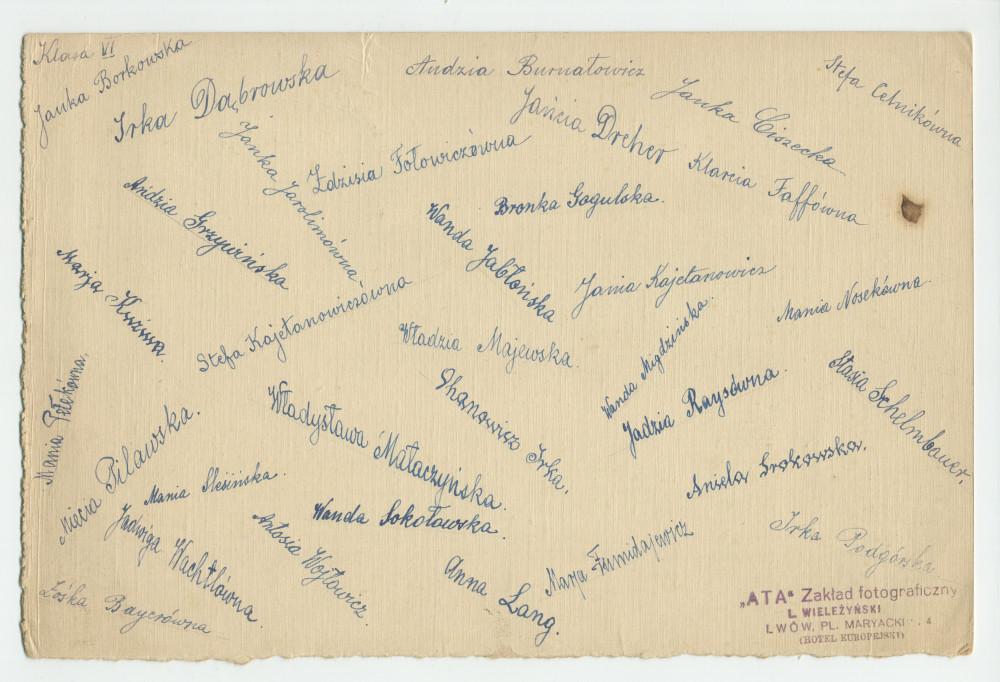 Klasa VI
Janka Borkowska
Irka Dąbrowska
Andzia Burnatowicz
Stefa Celnikówna
Janka Ciszecka
Jańcia Dreher
Janka Jarolimówna
Zdzisia Fołowiczówna
Klarcia Faffówna
Andzia Grzywińska
Bronka Gogulska.
Wanda Jabłońska
Marja
Jania Kajetanowicz
Stefa Kajetanowiczówna
Mania Nosekówna
Władzia Majewska.
Wanda Migdzińska.
Jadzia Raysówna.
Stasia Schelmbauer.
Mania
Władysława Małaczyńska.
Ohanowicz Irka.
Miecia Pilawska.
Aniela Srokowska.
Mania Slesińska.
Wanda Sokołowska.
Jadwiga Wachtlówna.
Antosia Wojtowicz.
Anna Lang.
Marja
Irka Podgórska
Zośka Bayerówna
„ATA" Zakład fotograficzny
L. WIELEŻYŃSKI
LWÓW, PL. MARYACKI 4
(HOTEL EUROPEJSKI)